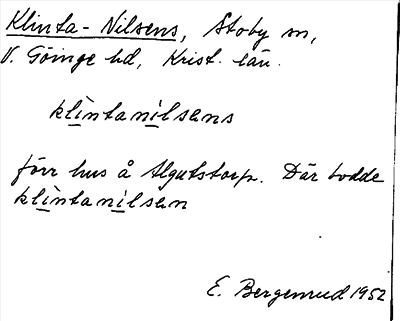 Klinta-Nilsens, Stoby sn,
V. Göinge hd, Krist. län.
klintanilsens
förr hus å Algutstorp. Där bodde
klintanilsen
E. Bergenrud 1952